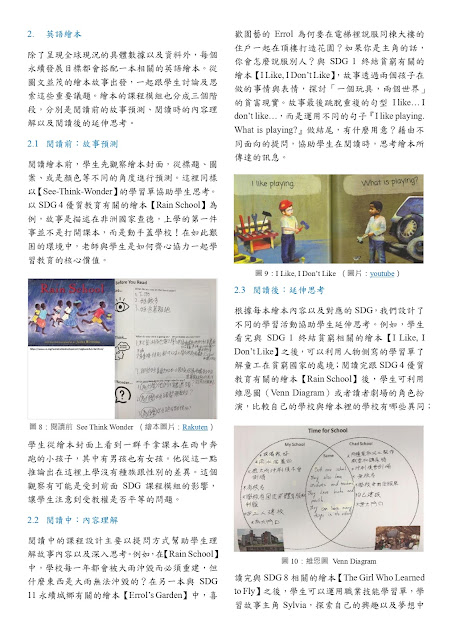 2. 英語繪本
除了呈現全球現況的具體數據以及資料外，每個
永續發展目標都會搭配一本相關的英語繪本。從
圖文並茂的繪本故事出發，一起跟學生討論及思
索這些重要議題。繪本的課程模組也分成三個階
段，分別是閱讀前的故事預測、閱讀時的內容理
解以及閱讀後的延伸思考。
2.1 閱讀前：故事預測
閱讀繪本前，學生先觀察繪本封面，從標題、圖
案、或是顏色等不同的角度進行預測。這裡同樣
以【See-Think-Wonder】的學習單協助學生思考。
以 SDG 4 優質教育有關的繪本【Rain School】為
例，故事是描述在非洲國家查德，上學的第一件
事並不是打開課本，而是動手蓋學校！在如此艱
困的環境中，老師與學生是如何齊心協力一起學
習教育的核心價值。
Rain School
Before You Read
圖 8：閱讀前 See Think Wonder （繪本圖片：Rakuten）
學生從繪本封面上看到一群手拿課本在雨中奔
跑的小孩子，其中有男孩也有女孩。他從這一點
推論出在這裡上學沒有種族跟性別的差異。這個
觀察有可能是受到前面 SDG 課程模組的影響，
讓學生注意到受教權是否平等的問題。
2.2 閱讀中：內容理解
閱讀中的課程設計主要以提問方式幫助學生理
解故事內容以及深入思考。例如，在【Rain School】
中，學校每一年都會被大雨沖毀而必須重建，但
什麼東西是大雨無法沖毀的？在另一本與 SDG
11 永續城鄉有關的繪本【Errol's Garden】中，喜
歡園藝的 Errol 為何要在電梯裡說服同棟大樓的
住戶一起在頂樓打造花園？如果你是主角的話，
你會怎麼說服別人？與 SDG 1 終結貧窮有關的
繪本【I Like, I Don't Like】，故事透過兩個孩子在
做的事情與表情，探討「一個玩具，兩個世界」
的貧富現實。故事最後跳脫重複的句型 I like… I
don't like…，而是運用不同的句子『I like playing.
What is playing?』做結尾，有什麼用意？藉由不
同面向的提問，協助學生在閱讀時，思考繪本所
傳達的訊息。
I like playing.
What is playing?
圖 9：I Like, I Don't Like （圖片：youtube）
2.3 閱讀後：延伸思考
根據每本繪本內容以及對應的 SDG，我們設計了
不同的學習活動協助學生延伸思考。例如，學生
看完與 SDG 1 終結貧窮相關的繪本【I Like, I
Don't Like】之後，可以利用人物側寫的學習單了
解童工在貧窮國家的處境；閱讀完跟 SDG 4 優質
教育有關的繪本【Rain School】後，學生可利用
維恩圖（Venn Diagram）或者讀者劇場的角色扮
演，比較自己的學校與繪本裡的學校有哪些異同；
Time for School
My School
Chad School
Same
圖 10：維恩圖 Venn Diagram
讀完與 SDG 8 相關的繪本【The Girl Who Learned
to Fly】之後，學生可以運用職業技能學習單，學
習故事主角 Sylvia，探索自己的興趣以及夢想中